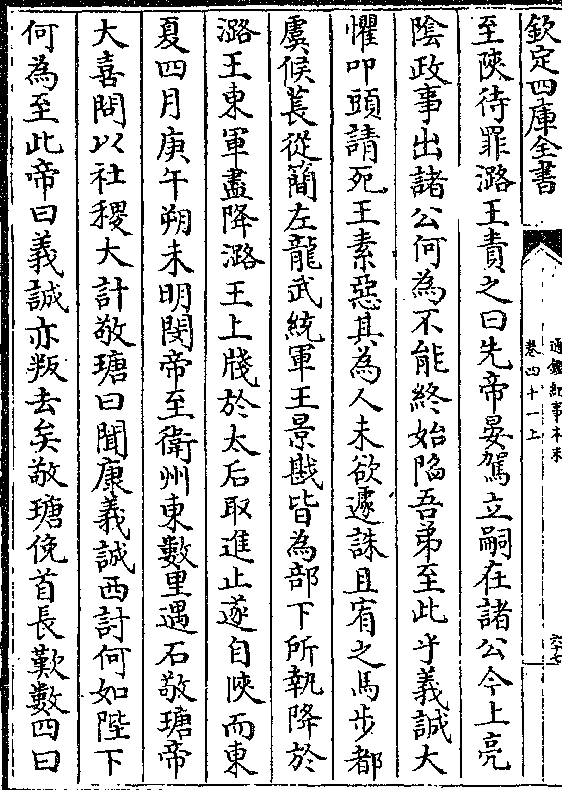 欽定四庫全書
通鑑紀事本末
卷四十一上
六十七
至陜待罪潞王責之曰先帝晏駕立嗣在諸公今上亮
陰政事出諸公何為不能終始陷吾弟至此乎義誠大
懼叩頭請死王素惡其為人未欲遽誅且宥之馬步都
虞候萇從簡左龍武統軍王景戡皆為部下所執降於
潞王東軍盡降潞王上牋於太后取進止遂自陜而東
夏四月庚午朔未明閔帝至衛州東數里遇石敬瑭帝
大喜問以社稷大計敬瑭曰聞康義誠西討何如陛下
何為至此帝曰義誠亦叛去矣敬瑭俛首長歎數四曰